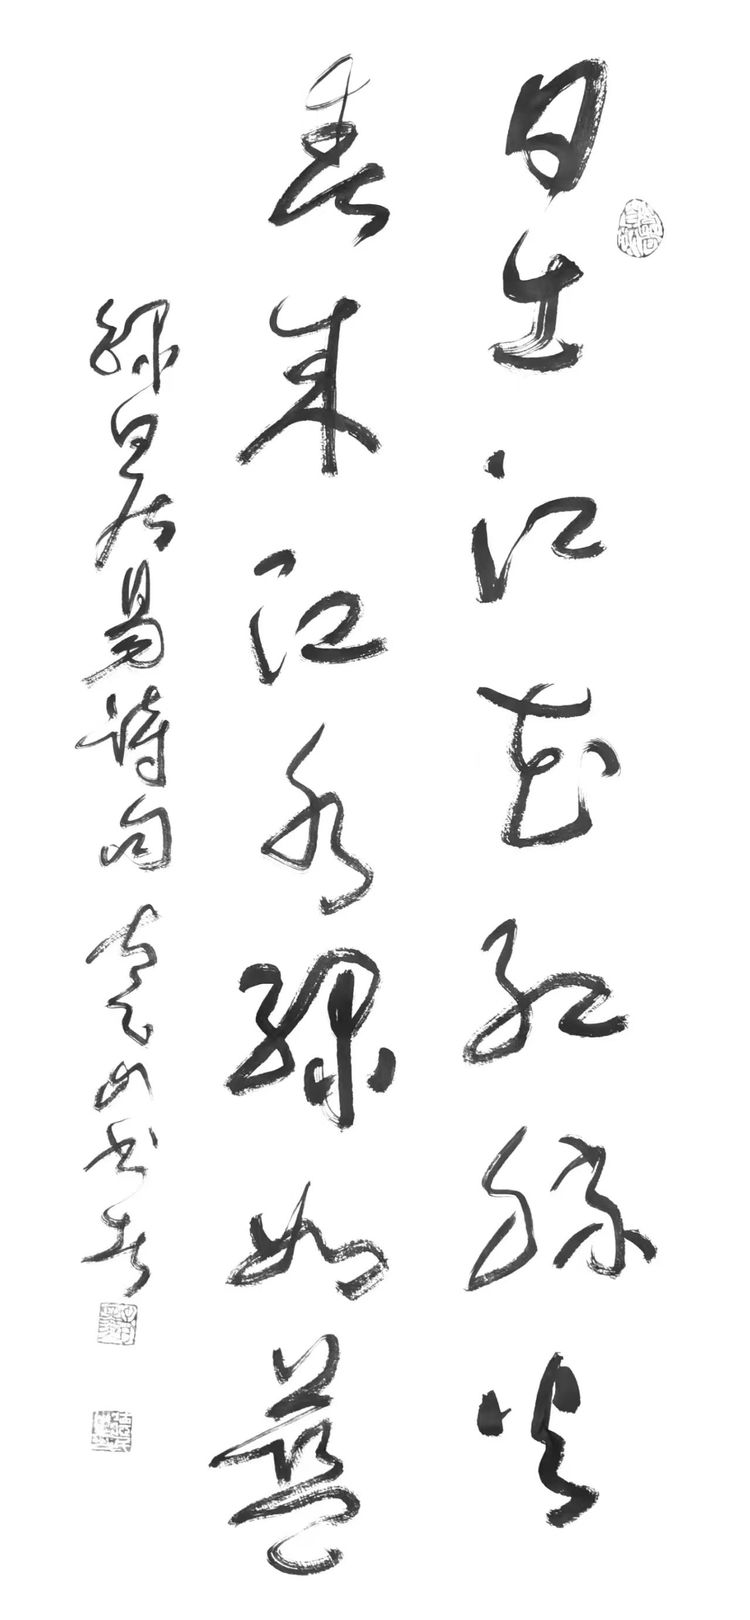 日出江花红胜火
春来江水绿如蓝
录白居易诗句